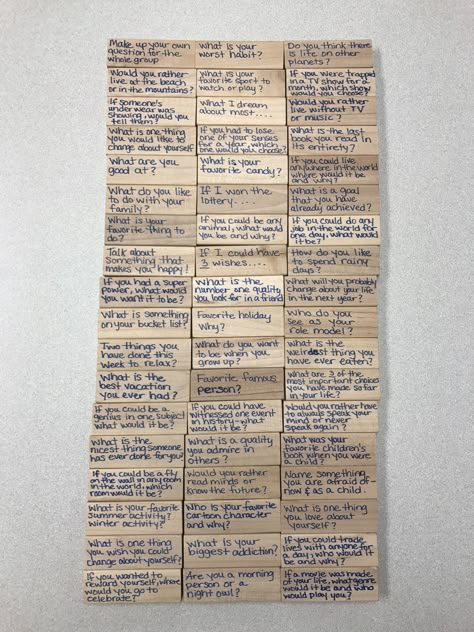 Make up your own
question for the
whole group
What is your
worst habit?
Do you think there
is life on other
planets?
Would you rather
live at the beach
or in the mountains?
What is your
favorite sport to
watch or play?
If you were trapped
in a TV show for a
month, which show
would you choose?
If someone's
underwear was
showing, would you
tell them?
What I dream
about most....
Would you rather
live without TV
or music?
What is one thing
you would like to
change about yourself
If you had to lose
one of your senses
for a year, which
one would you choose?
What is the last
book you read in
its entirety?
What are you
good at?
What is your
favorite candy?
If you could live
anywhere in the world
where would it be
and why?
What do you like
to do with your
family?
If I won the
lottery....
What is a goal
that you have
already achieved?
What is your
favorite thing to
do?
If you could be any
animal, what would
you be and why?
If you could do any
job in the world for
one day, what would
it be?
Talk about
something that
makes you happy!
If I could have
3 wishes....
How do you like
to spend rainy
days?
If you had a super
power, what would
you want it to be?
What is the
number one quality
you look for in a friend
What will you probably
change about your life
in the next year?
What is something
on your bucket list?
Favorite holiday
Why?
Who do you
see as your
role model?
Two things you
have done this
week to relax?
What do you want
to be when you
grow up?
What is the
weirdest thing you
have ever eaten?
What is the
best vacation
you ever had?
Favorite famous
person?
What are 3 of the
most important choices
you have made so far
in your life?
If you could be a
genius in one subject
what would it be?
If you could have
witnessed one event
in history-what
would it be?
Would you rather have
to always speak your
mind or never
speak again?
What is the
nicest thing someone
has ever done for you?
What is a quality
you admire in
others?
What was your
favorite children's
book when you were
a child?
If you could be a fly
on the wall in any room
in the world, which
room would it be?
Would you rather
read minds or
know the future?
Name something
you are afraid of-
now & as a child.
What is your favorite
summer activity?
winter activity?
Who is your favorite
cartoon character
and why?
What is one thing
you love about
yourself?
What is one thing
you wish you could
change about yourself?
What is your
biggest addiction?
If you could trade
lives with anyone for
a day, who would it
be and why?
If you wanted to
reward yourself, where
would you go to
celebrate?
Are you a morning
person or a
night owl?
If a movie was made
of your life, what genre
would it be and who
would play you?